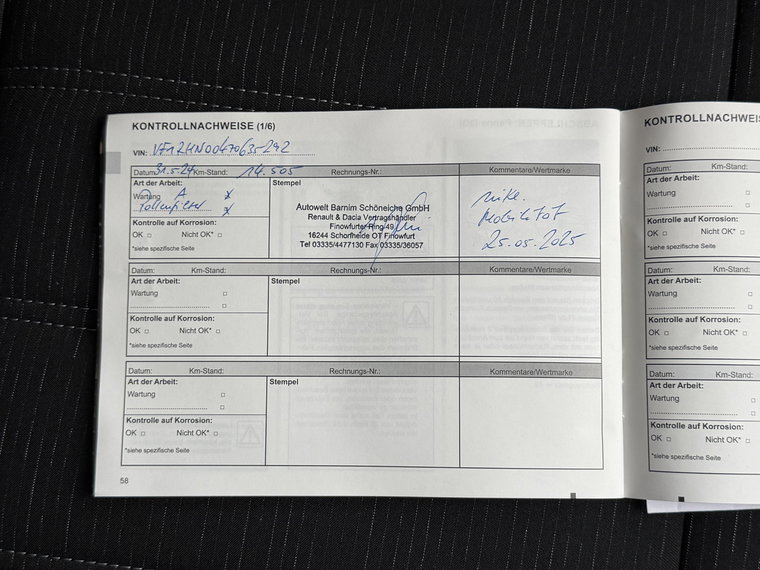 KONTROLLNACHWEISE (1/6)
VIN:
Datum: 31.5.24 Km-Stand: 14.505 Rechnungs-Nr.: Kommentare/Wertmarke
Art der Arbeit: Stempel
Wartung A x
Pollenfilter x
Kontrolle auf Korrosion:
OK □ Nicht OK* □
*siehe spezifische Seite
Autowelt Barnim Schöneiche GmbH
Renault & Dacia Vertragshändler
Finowfurter Ring 49
16244 Schorfheide OT Finowfurt
Tel 03335/4477130 Fax 03335/36057
Mobilität
25.05.2025
Datum: Km-Stand: Rechnungs-Nr.: Kommentare/Wertmarke
Art der Arbeit: Stempel
Wartung □
□
Kontrolle auf Korrosion:
OK □ Nicht OK* □
*siehe spezifische Seite
Datum: Km-Stand: Rechnungs-Nr.: Kommentare/Wertmarke
Art der Arbeit: Stempel
Wartung □
□
Kontrolle auf Korrosion:
OK □ Nicht OK* □
*siehe spezifische Seite
58
KONTROLLNACHWEIS
VIN:
Datum: Km-Stand:
Art der Arbeit:
Wartung □
□
Kontrolle auf Korrosion:
OK □ Nicht OK* □
*siehe spezifische Seite
Datum: Km-Stand:
Art der Arbeit:
Wartung □
□
Kontrolle auf Korrosion:
OK □ Nicht OK* □
*siehe spezifische Seite
Datum: Km-Stand:
Art der Arbeit:
Wartung □
□
Kontrolle auf Korrosion:
OK □ Nicht OK* □
*siehe spezifische Seite